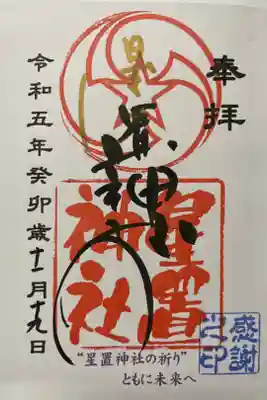 奉拝
星置神社
星置
神社
令和五年癸卯歳十一月十九日
感謝
"星置神社の祈り"
ともに未来へ